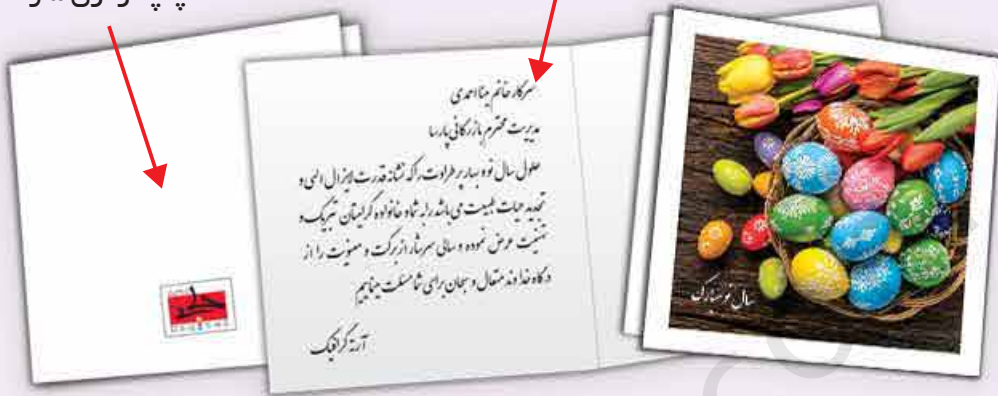 سرکار خانم مینا احمدی
مدیریت محترم بازرگانی پارسا
حلول سال نو و بهار پر طراوت را که نشانه قدرت لایزال الهی و
تجدید حیات طبیعت می باشد را به شما و خانواده گرامیتان تبریک و
تهنیت عرض نموده و سالی سرشار از برکت و معنویت را از
درگاه خداوند متعال و سبحان برای شما مسئلت مینماییم
آرته گرافیک
سال نو مبارک